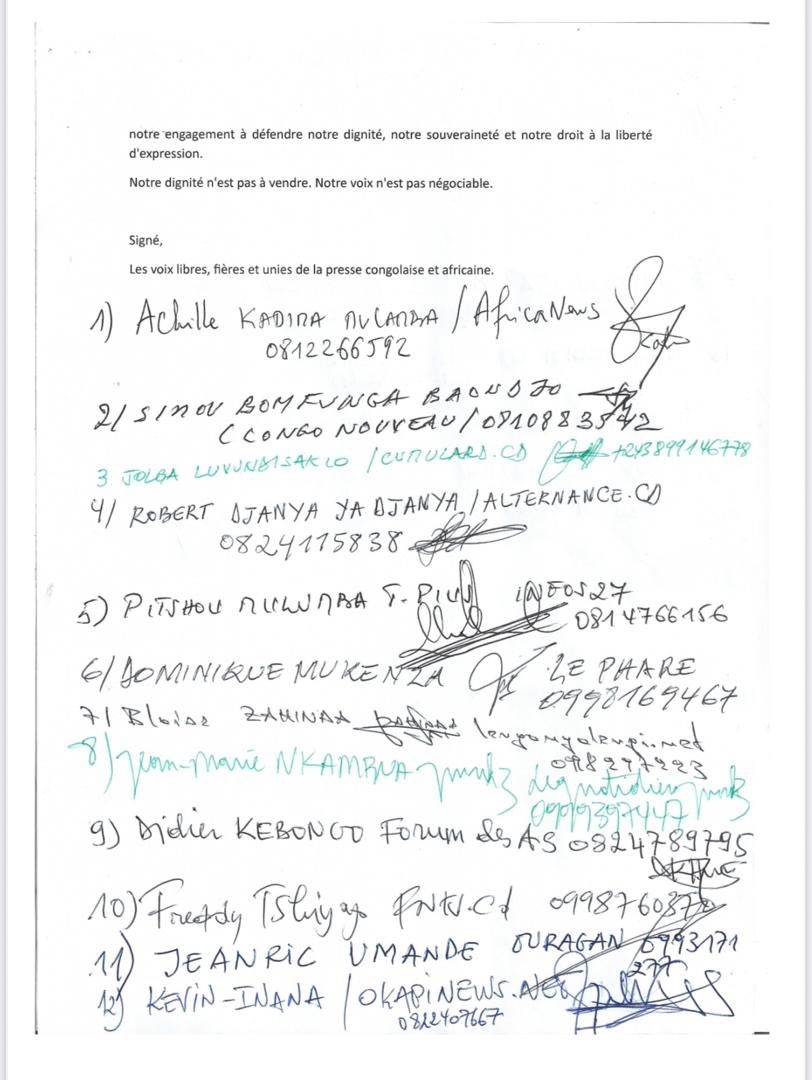 notre engagement à défendre notre dignité, notre souveraineté et notre droit à la liberté
d'expression.
Notre dignité n'est pas à vendre. Notre voix n'est pas négociable.
Signé,
Les voix libres, fières et unies de la presse congolaise et africaine.
1) Achille KADIMA MULAMBA / AfricaNews
0812266592
2/ SIMON BOMFUNGA
(CONGO NOUVEAU/
3 JOLGA LUVUNDISAKIO / +243899146778
4/ ROBERT DJANYA YA DJANYA / ALTERNANCE.CD
0824115838
5) PITSHOU MULUMBA T. PIUS INFOS27
0814766156
6/ DOMINIQUE MUKENZA LE PHARE
0998169467
7/ Blaise
8) Jean-Marie NKAMBUA
9) Didier KEBONGO Forum des AS 0824789795
10) Freddy
11) JEANRIC UMANDE OURAGAN 0993171
277
12) KEVIN-INANA / OKAPINEWS.NET
0822407667